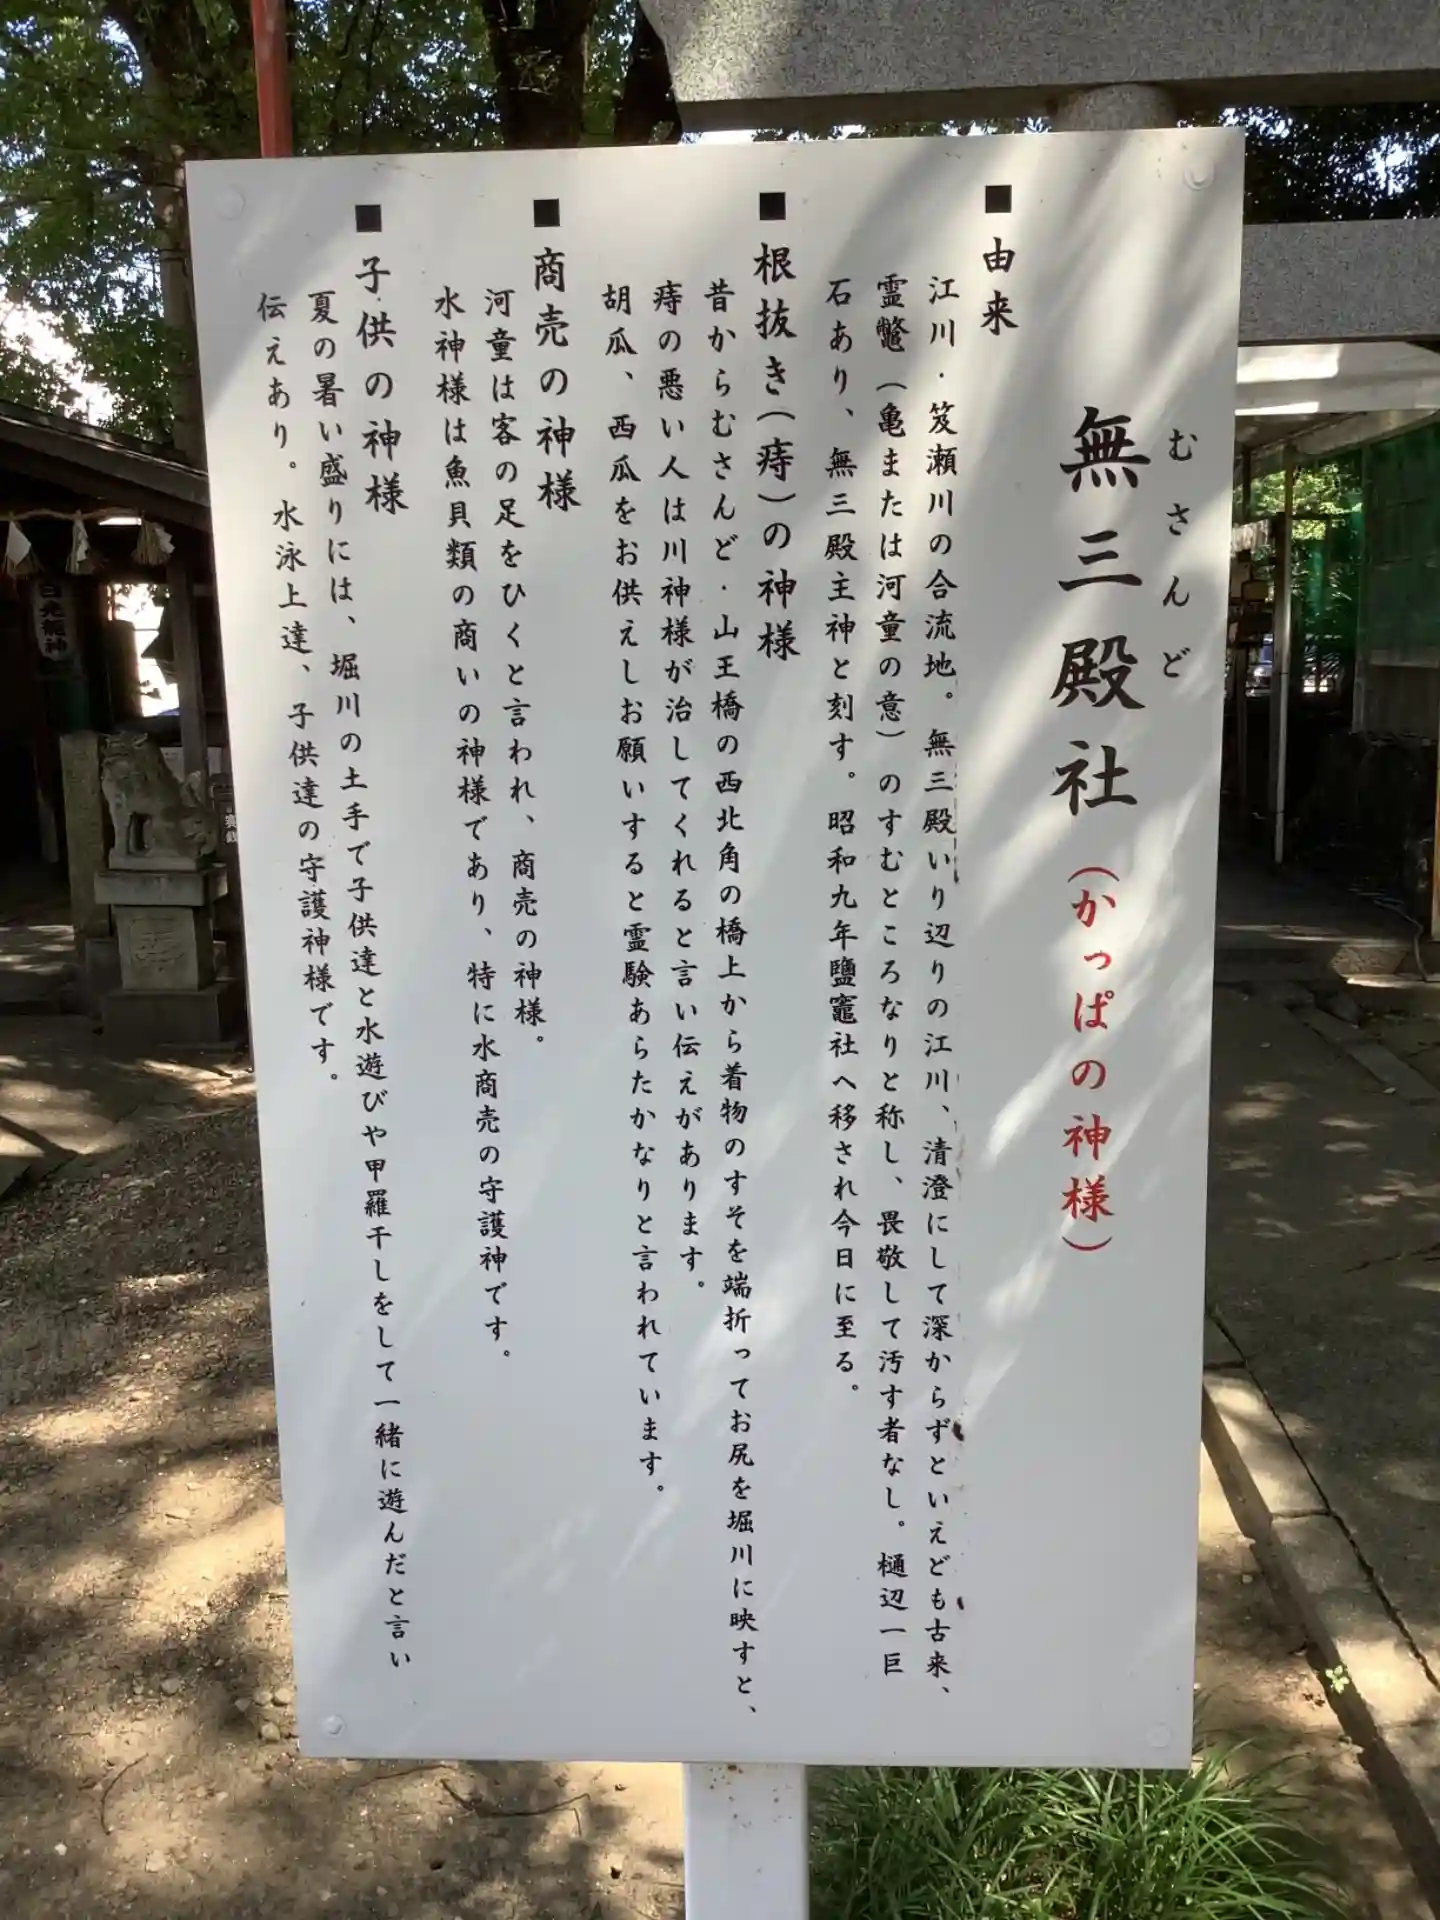 むさんど
無三殿社（かっぱの神様）
■由来
江川・笈瀬川の合流地。無三殿いり辺りの江川、清澄にして深からずといえども古来、
霊鼈（亀または河童の意）のすむところなりと称し、畏敬して汚す者なし。樋辺一巨
石あり、無三殿主神と刻す。昭和九年鹽竈社へ移され今日に至る。
■根抜き（痔）の神様
昔からむさんど・山王橋の西北角の橋上から着物のすそを端折ってお尻を堀川に映すと、
痔の悪い人は川神様が治してくれると言い伝えがあります。
胡瓜、西瓜をお供えしお願いすると霊験あらたかなりと言われています。
■商売の神様
河童は客の足をひくと言われ、商売の神様。
水神様は魚貝類の商いの神様であり、特に水商売の守護神です。
■子供の神様
夏の暑い盛りには、堀川の土手で子供達と水遊びや甲羅干しをして一緒に遊んだと言い
伝えあり。水泳上達、子供達の守護神様です。
白光龍神